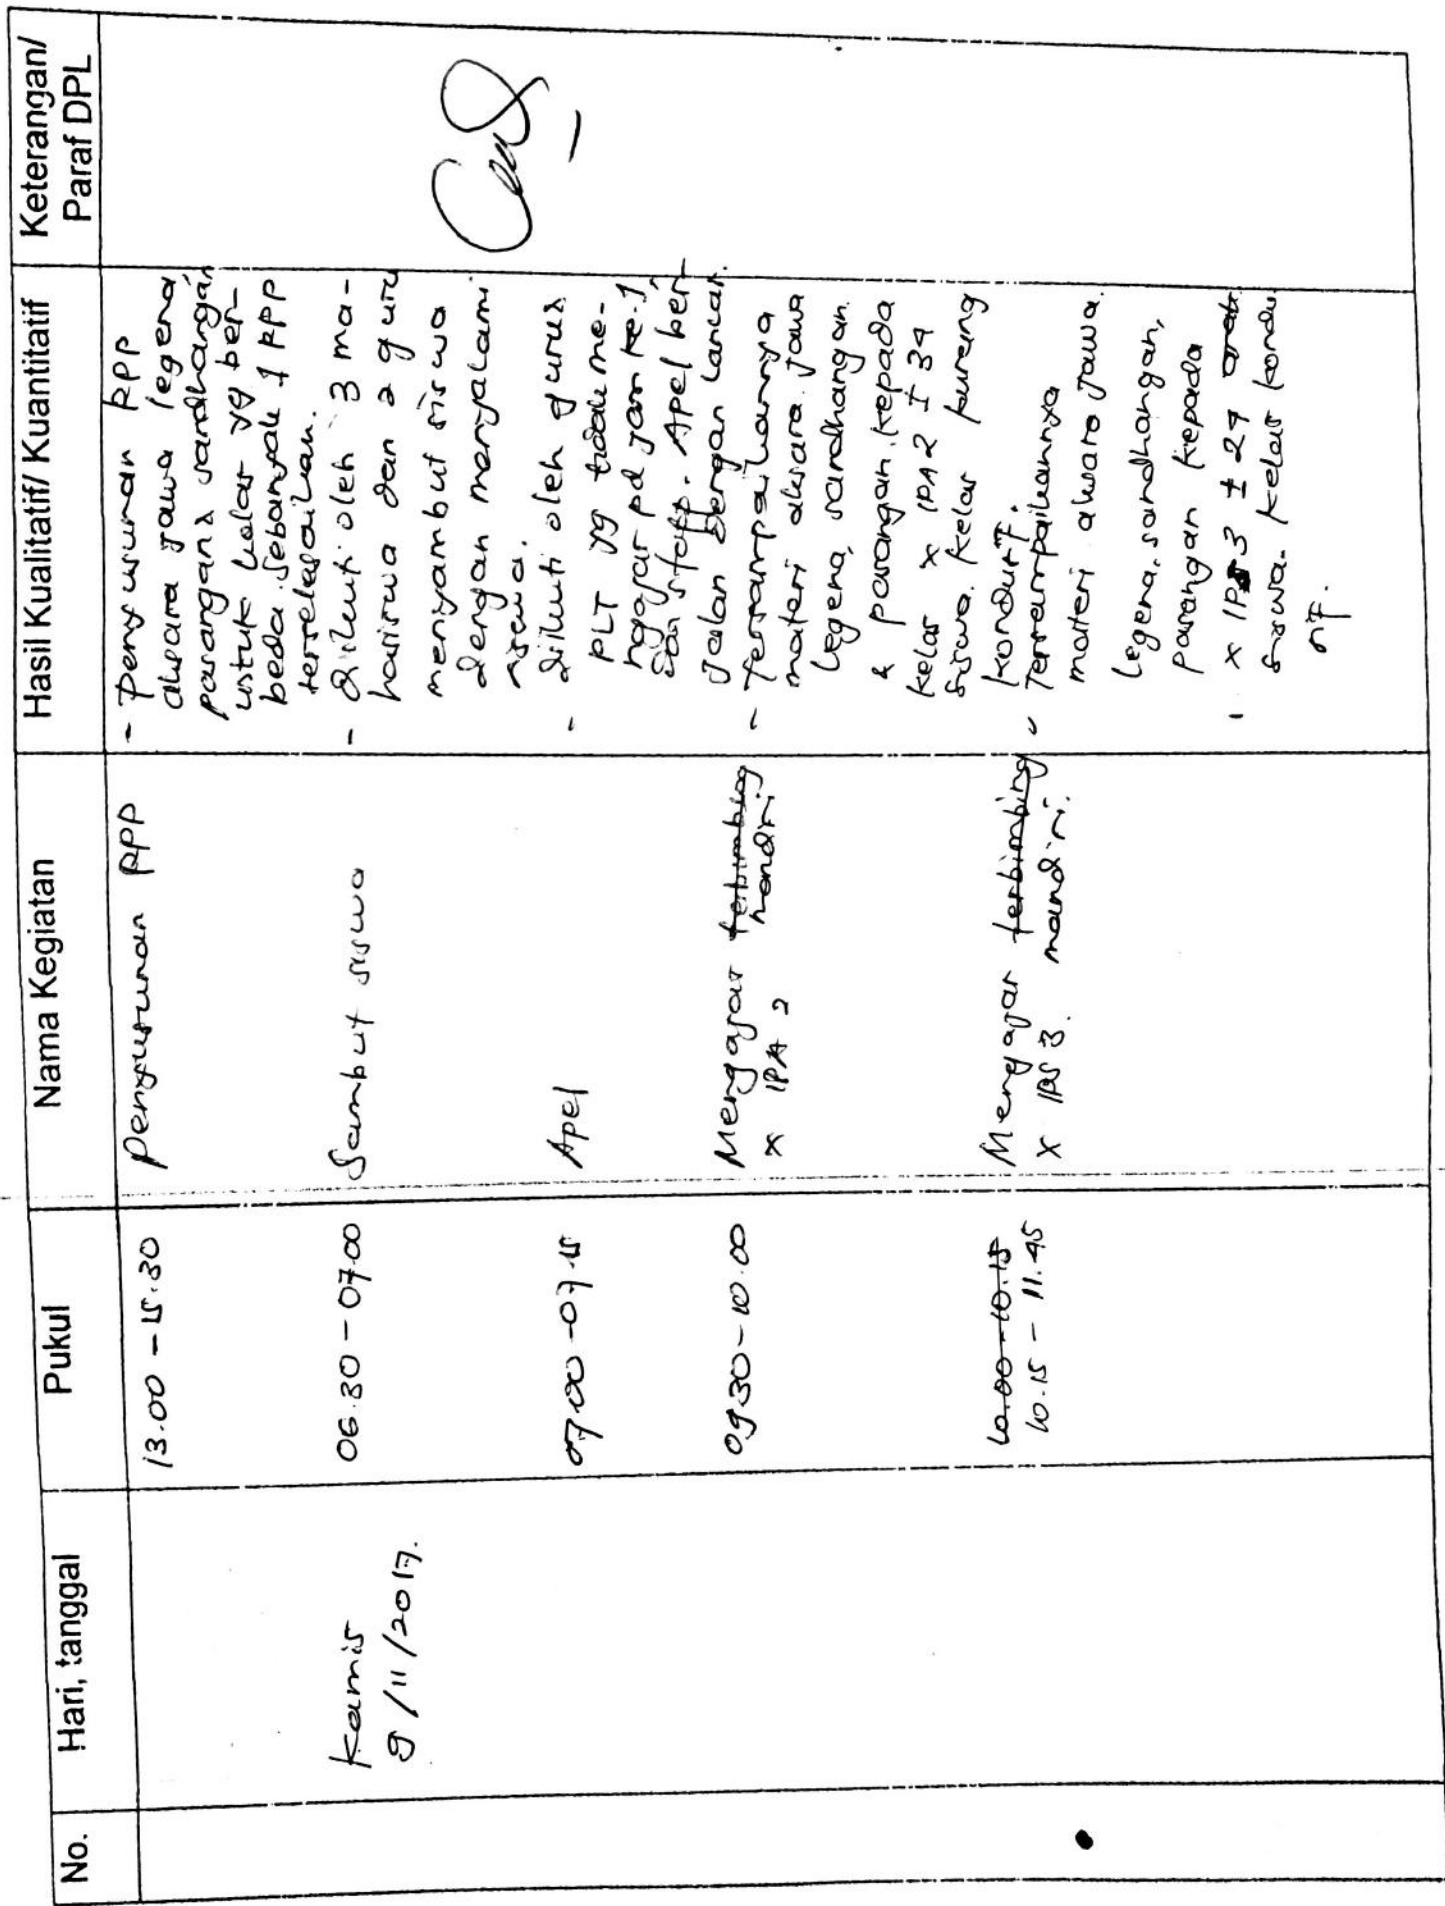 No.
Hari, tanggal
Pukul
Nama Kegiatan
Hasil Kualitatif/ Kuantitatif
Keterangan/
Paraf DPL
13.00 - 15.30
Penyusunan RPP
- Penyusunan RPP
aksara jawa legena
pasangan & sandhangan
untuk kelas yg ber-
beda. Sebanyak 1 RPP
terselesaikan.
Kamis
9/11/2017.
06.30 - 07.00
Sambut siswa
- Diikuti oleh 3 ma-
hasiswa dan 2 guru
menyambut siswa
dengan menyalami
siswa.
07.00 - 07.15
Apel
- Diikuti oleh guru2
PLT yg tidak me-
ngajar pd jam ke-1
dan staff. Apel ber-
jalan dengan lancar.
09.30 - 10.00
Mengajar terbimbing
mandiri
X IPA 2
- Tersampaikannya
materi aksara jawa
legena, sandhangan
& pasangan kepada
kelas X IPA 2 ± 34
siswa. Kelas kurang
kondusif.
10.00 - 10.15
10.15 - 11.45
Mengajar terbimbing
X IPS 3. mandiri.
- Tersampaikannya
materi aksara jawa
legena, sandhangan,
pasangan kepada
X IPS 3 ± 29
siswa. Kelas kondu
sif.